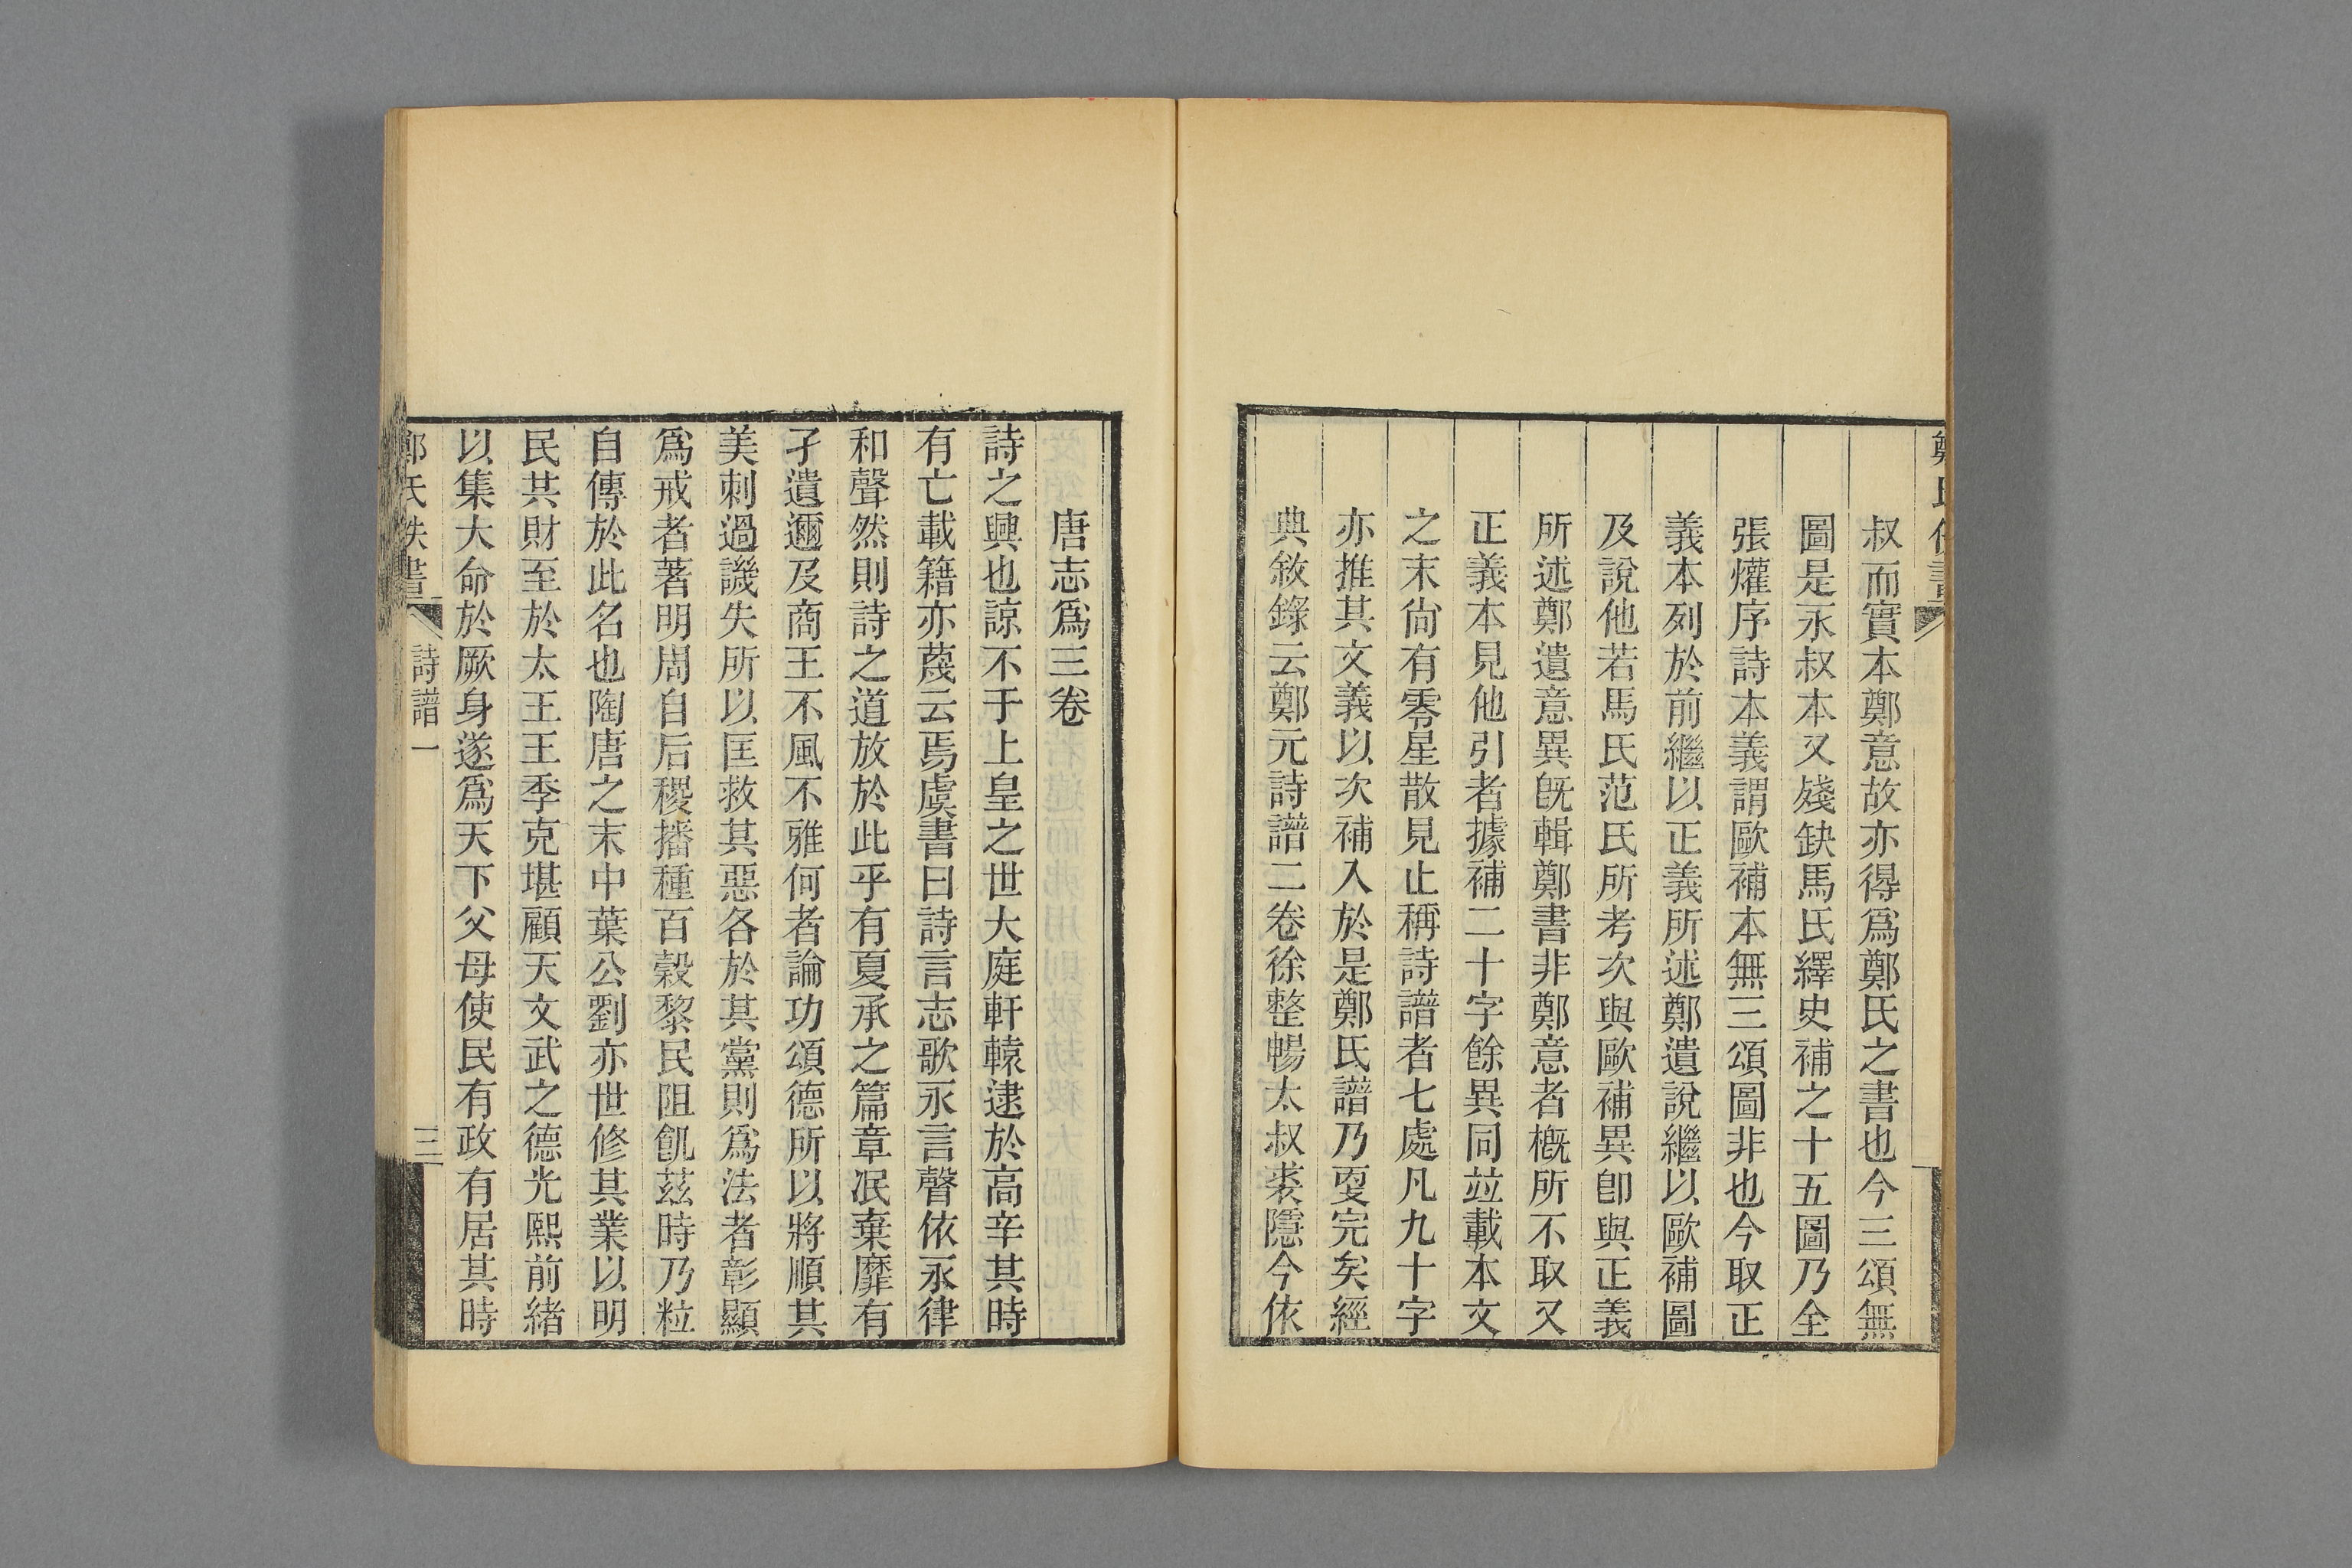 叔而實本鄭意故亦得爲鄭氏之書也今三頌無
圖是永叔本又殘缺馬氏繹史補之十五圖乃全
張爟序詩本義謂歐補本無三頌圖非也今取正
義本列於前繼以正義所述鄭遺說繼以歐補圖
及說他若馬氏范氏所考次與歐補異卽與正義
所述鄭遺意異旣輯鄭書非鄭意者槪所不取又
正義本見他引者據補二十字餘異同竝載本文
之末尙有零星散見止稱詩譜者七處凡九十字
亦推其文義以次補入於是鄭氏譜乃更完矣經
典敘錄云鄭元詩譜二卷徐整暢太叔裘隱今依
唐志爲三卷
詩之興也諒不于上皇之世大庭軒轅逮於高辛其時
有亡載籍亦蔑云焉虞書曰詩言志歌永言聲依永律
和聲然則詩之道放於此乎有夏承之篇章泯棄靡有
孑遺邇及商王不風不雅何者論功頌德所以將順其
美刺過譏失所以匡救其惡各於其黨則爲法者彰顯
爲戒者著明周自后稷播種百穀黎民阻飢茲時乃粒
自傳於此名也陶唐之末中葉公劉亦世修其業以明
民共財至於太王王季克堪顧天文武之德光熙前緒
以集大命於厥身遂爲天下父母使民有政有居其時
鄭氏佚書
詩譜一
三